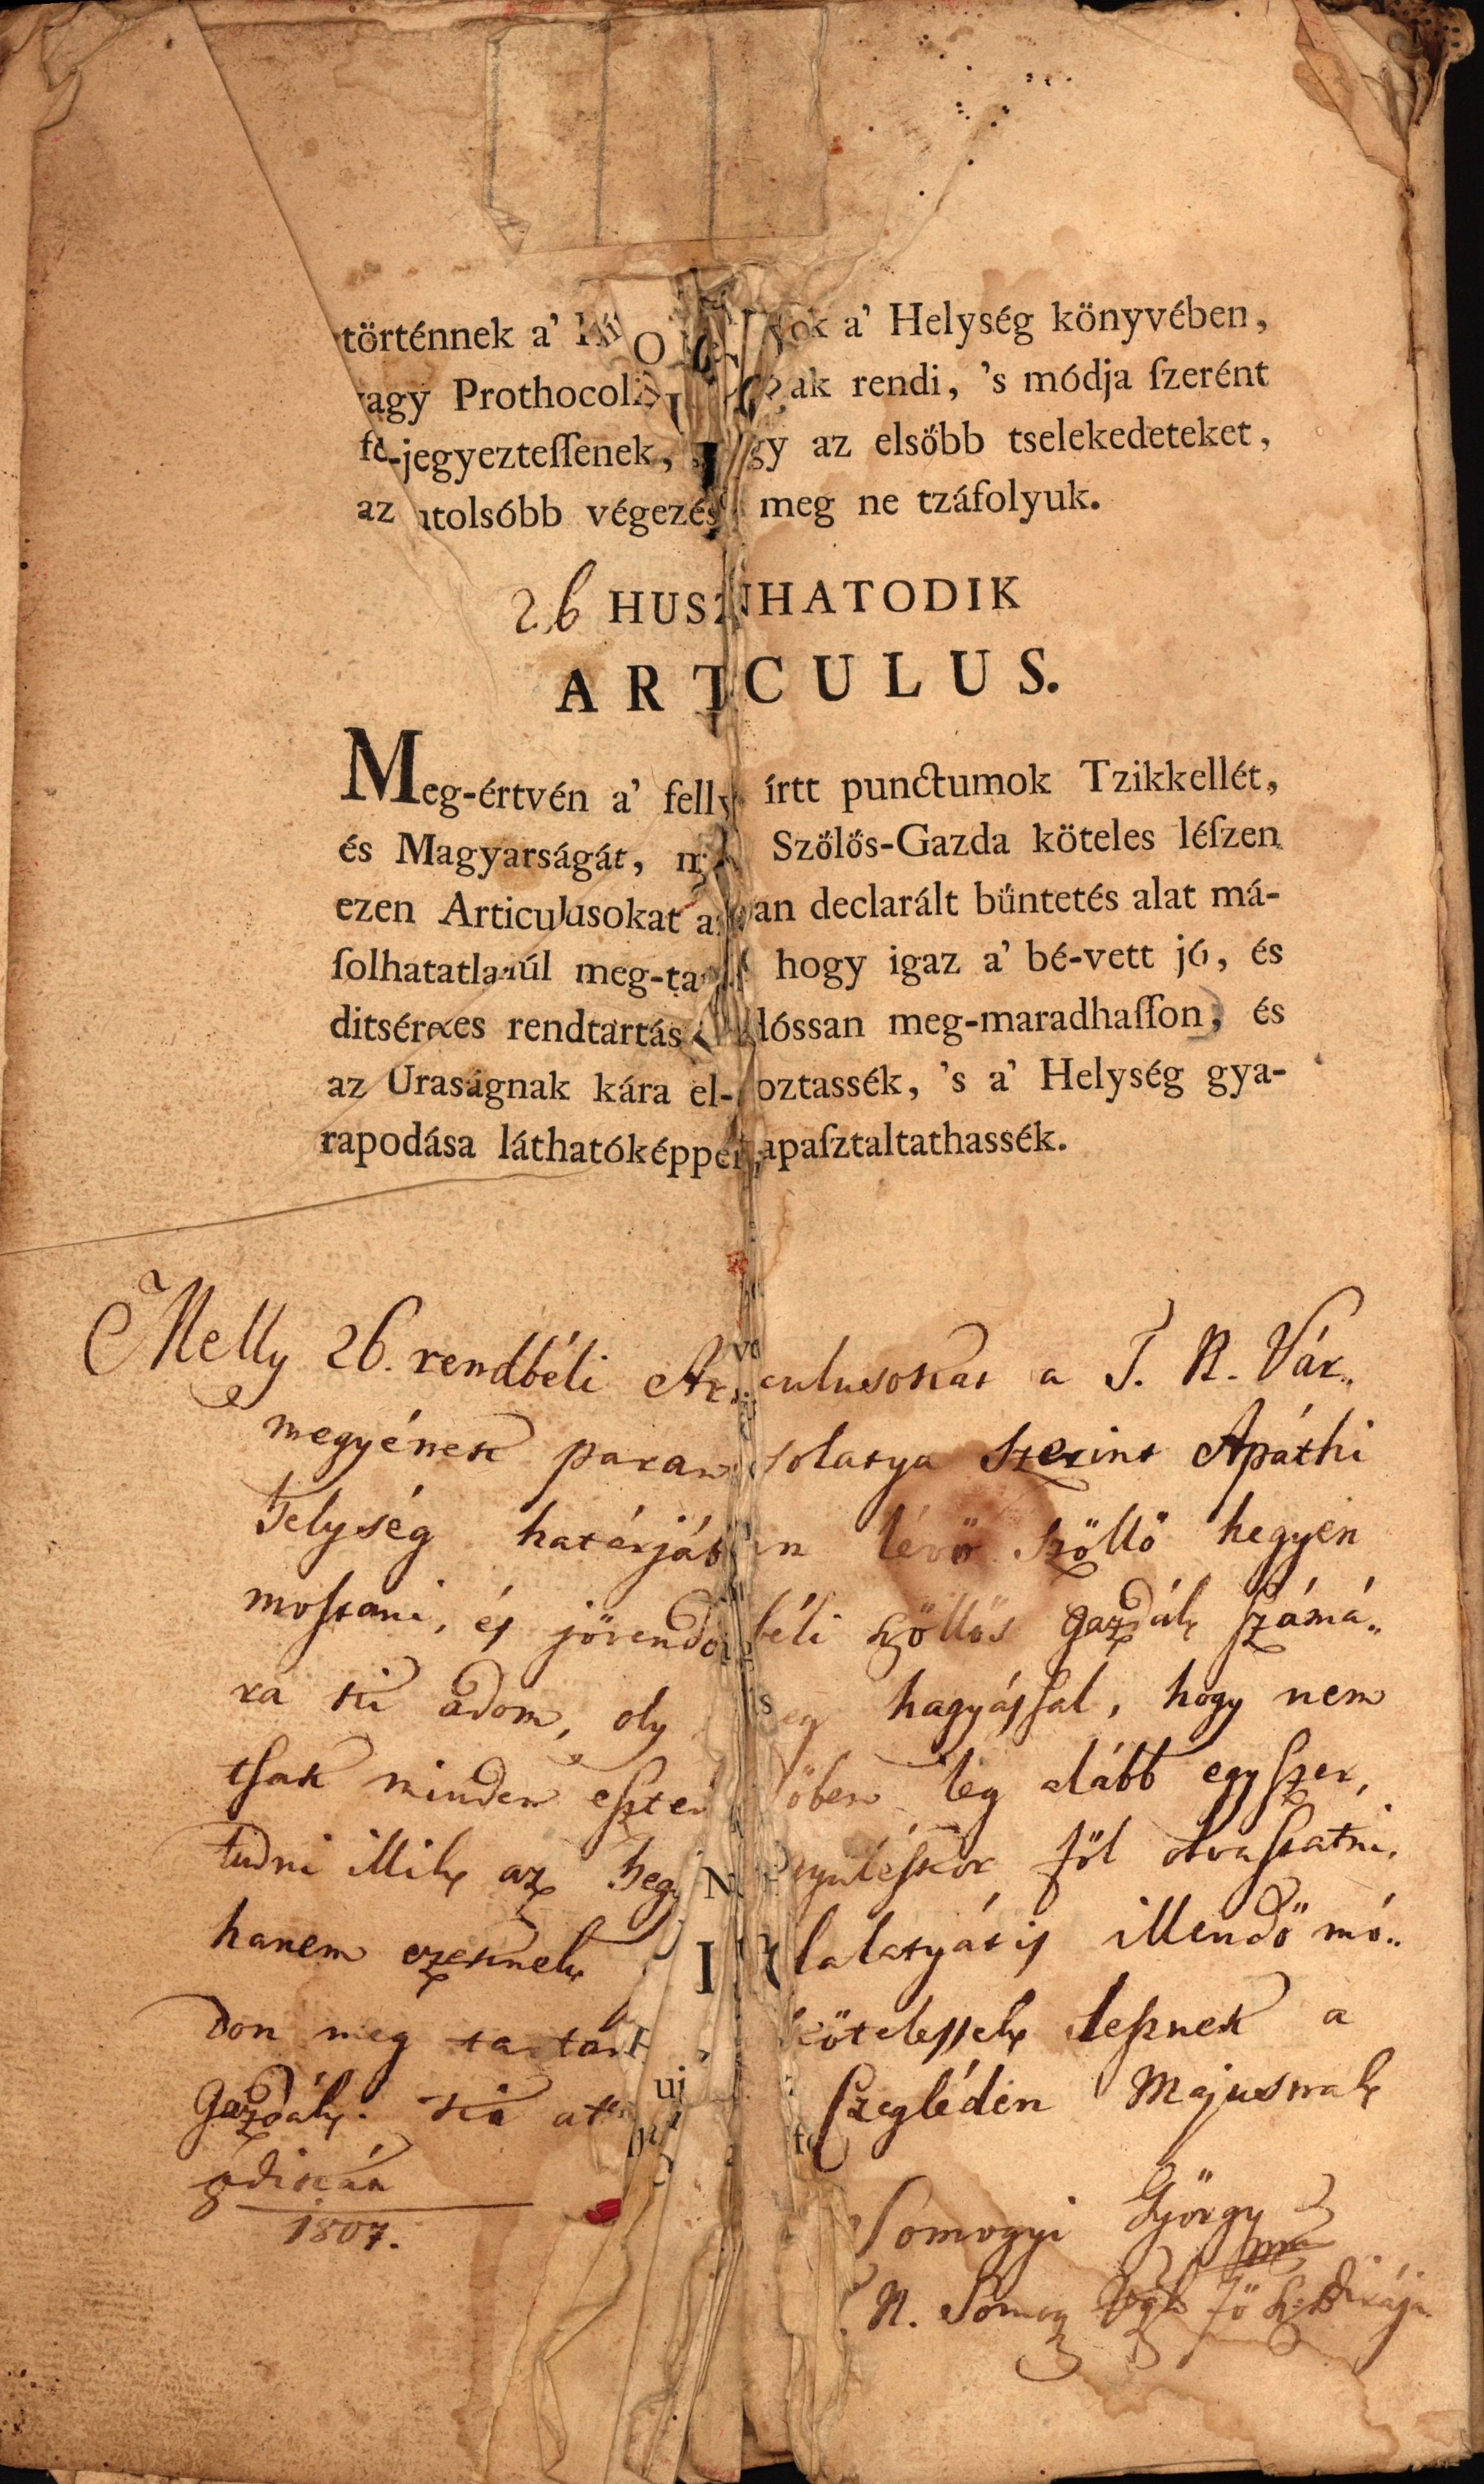 történnek a' ok a' Helység könyvében,
vagy Prothocol ak rendi, 's módja ſzerént
fe-jegyezteſſenek, gy az elsőbb tselekedeteket,
az utolsóbb végezés meg ne tzáfolyuk.
26 HUSZNHATODIK
ARTCULUS.
Meg-értvén a' felly írtt punctumok Tzikkellét,
és Magyarságát, Szőlős-Gazda köteles léſzen
ezen Articulusokat a an declarált büntetés alat má-
ſolhatatlanúl meg-ta hogy igaz a' bé-vett jó, és
ditséretes rendtartás dóssan meg-maradhaſſon, és
az Uraságnak kára el- oztassék, 's a' Helység gya-
rapodása láthatóképpen apaſztaltathassék.
Melly 26. rendbéli Ar culusokat a T. N. Vár„
megyének paran solatya szerint Apáthi
Helység határjáb n lévő szőllő hegyen
mostani, és jövendő béli szőllős gazdák számá„
ra ki adom, oly hagyással, hogy nem
tsak minden eszten őben leg alább egyszer,
tudni illik az hegy gyuléskor föl olvastatni,
hanem ezeknek foglalatyát is illendő mó„
don meg tartani kötelessek lesznek a
Gazdák. Szeglédén Majusnak
8dikán
1807.
Somogyi György
mk
N. Somogy Fő